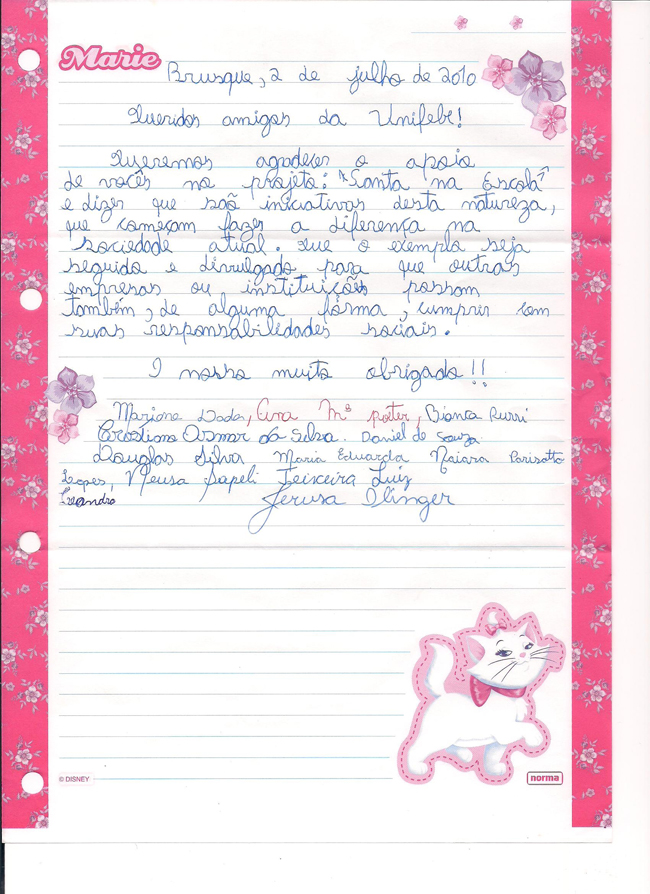 Marie
Brusque, 2 de julho de 2010
Queridos amigos da Unifebe!
Queremos agradecer o apoio
de vocês no projeto: "Santa na Escola"
e dizer que são iniciativas desta natureza,
que começam fazer a diferença na
sociedade atual. Que o exemplo seja
seguido e divulgado para que outras
empresas ou instituições possam
também, de alguma forma, cumprir com
suas responsabilidades sociais.
O nosso muito obrigado!!
Mariane Dada, Ana Mª, Bianca
Osmar da Silva. Daniel de Souza
Douglas Silva Maria Eduarda Naiara Parisotto
Lopes, Neusa Sapeli Teixeira Luiz
Leandro Jerusa Dlinger
© DISNEY
norma